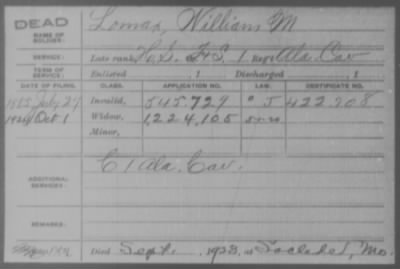 DEAD
NAME OF SOLDIER: Lomax, William M
SERVICE: Late rank, H.S. F.S. 1 Reg't Ala. Cav
TERM OF SERVICE: Enlisted , 1 Discharged , 1
DATE OF FILING. CLASS. APPLICATION NO. LAW. CERTIFICATE NO.
1885 July 29 Invalid, 545.729 422.908
1924 Oct 1 Widow, 1,224,105
Minor,
ADDITIONAL SERVICES: C 1 Ala. Cav.
REMARKS:
Died Sept. , 1923, at Mo.